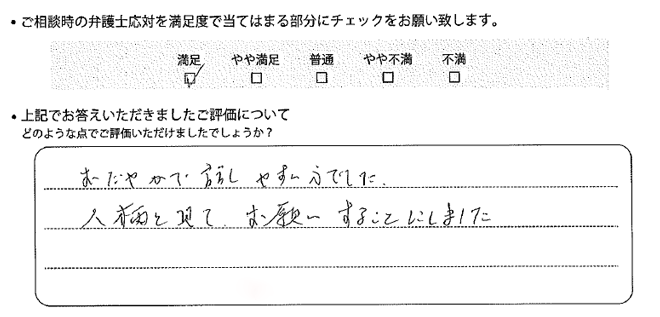 • ご相談時の弁護士応対を満足度で当てはまる部分にチェックをお願い致します。
満足 やや満足 普通 やや不満 不満
• 上記でお答えいただきましたご評価について
どのような点でご評価いただけましたでしょうか？
おだやかで 話し やすい方でした.
人柄を見て お願い することにしました